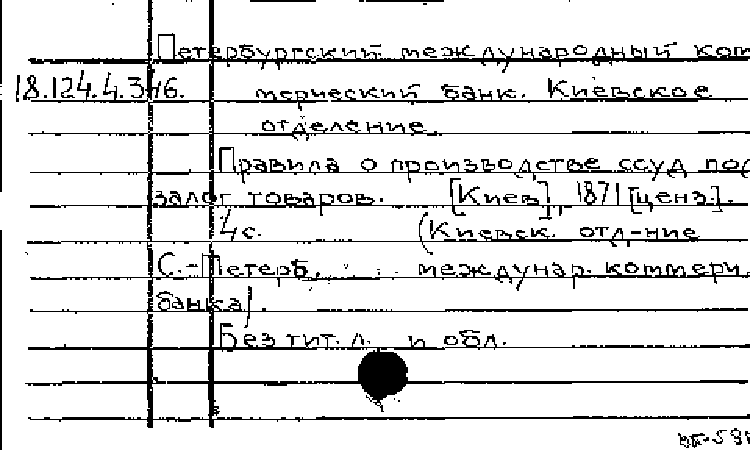 Петербургский международный ком
18.124.4.346. мерческий банк. Киевское
отделение.
Правила о производстве ссуд под
залог товаров. [Киев], 1871 [ценз.].
4 с. (Киевск. отд-ние
С.-Петерб. междунар. коммерч.
банка).
Без тит. л. и обл.